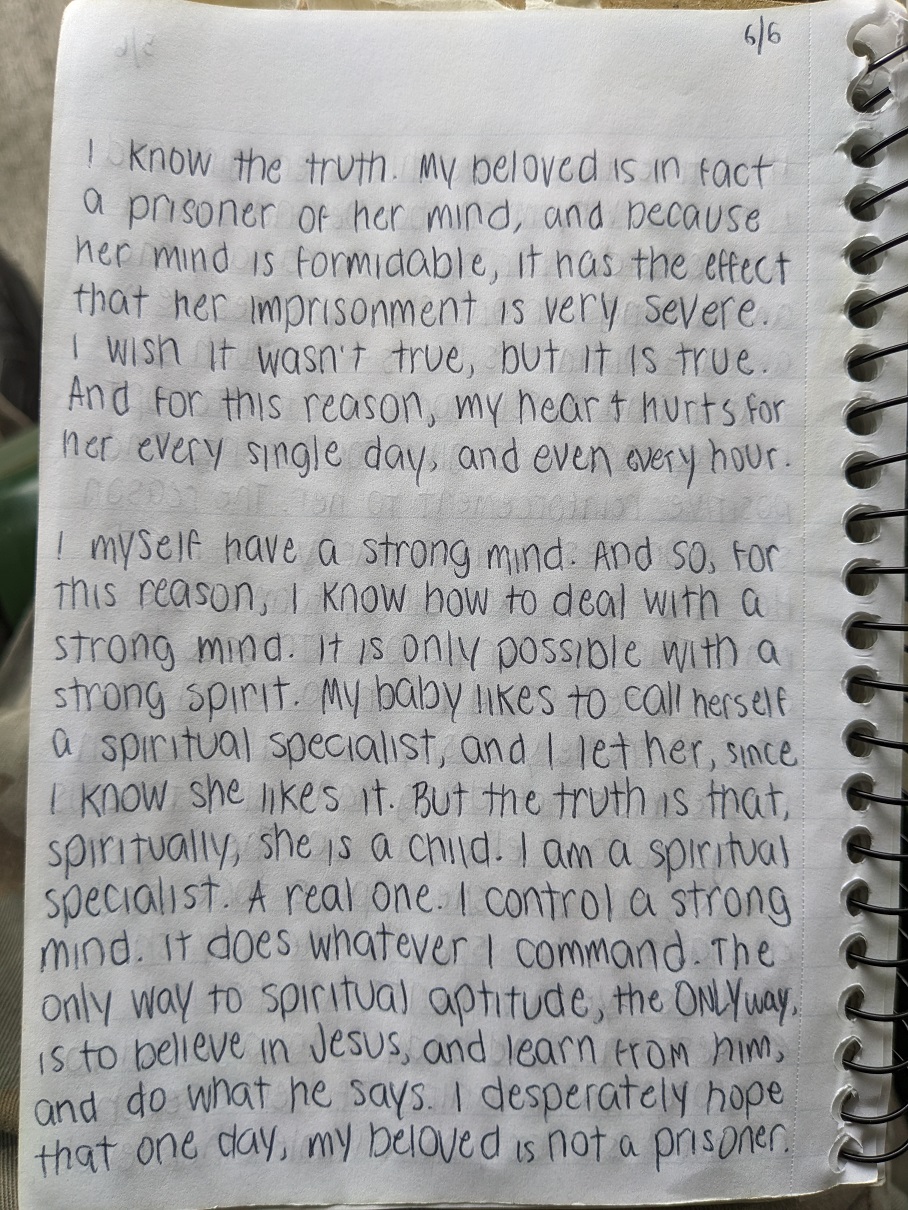 6/6
I know the truth. My beloved is in fact
a prisoner of her mind, and because
her mind is formidable, it has the effect
that her imprisonment is very severe.
I wish it wasn't true, but it is true.
And for this reason, my heart hurts for
her every single day, and even every hour.
I myself have a strong mind. And so, for
this reason, I know how to deal with a
strong mind. It is only possible with a
strong spirit. My baby likes to call herself
a spiritual specialist, and I let her, since
I know she likes it. But the truth is that,
spiritually, she is a child. I am a spiritual
specialist. A real one. I control a strong
mind. It does whatever I command. The
only way to spiritual aptitude, the ONLY way,
is to believe in Jesus, and learn from him,
and do what he says. I desperately hope
that one day, my beloved is not a prisoner.